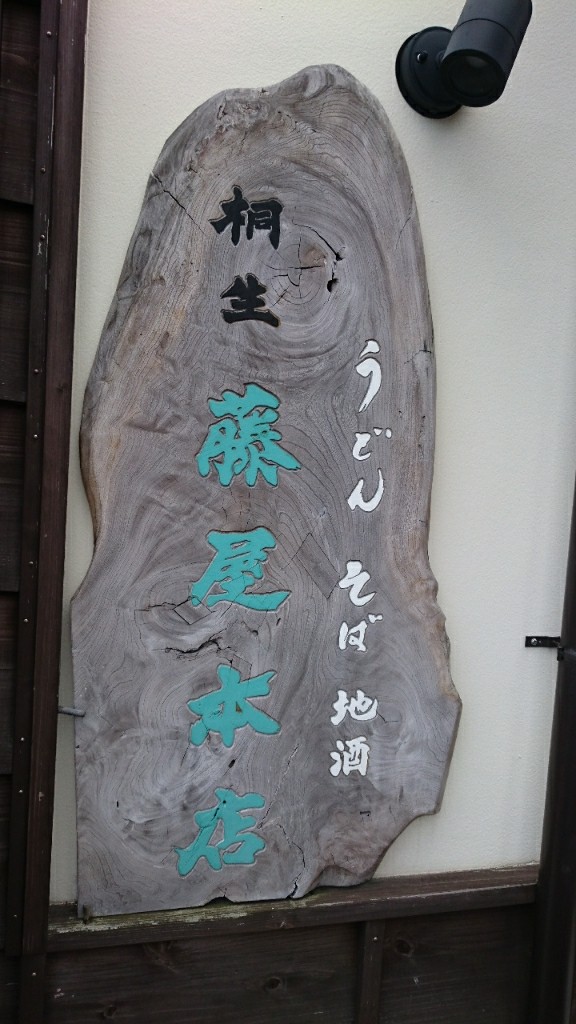 うどん そば 地酒
桐生
藤屋本店